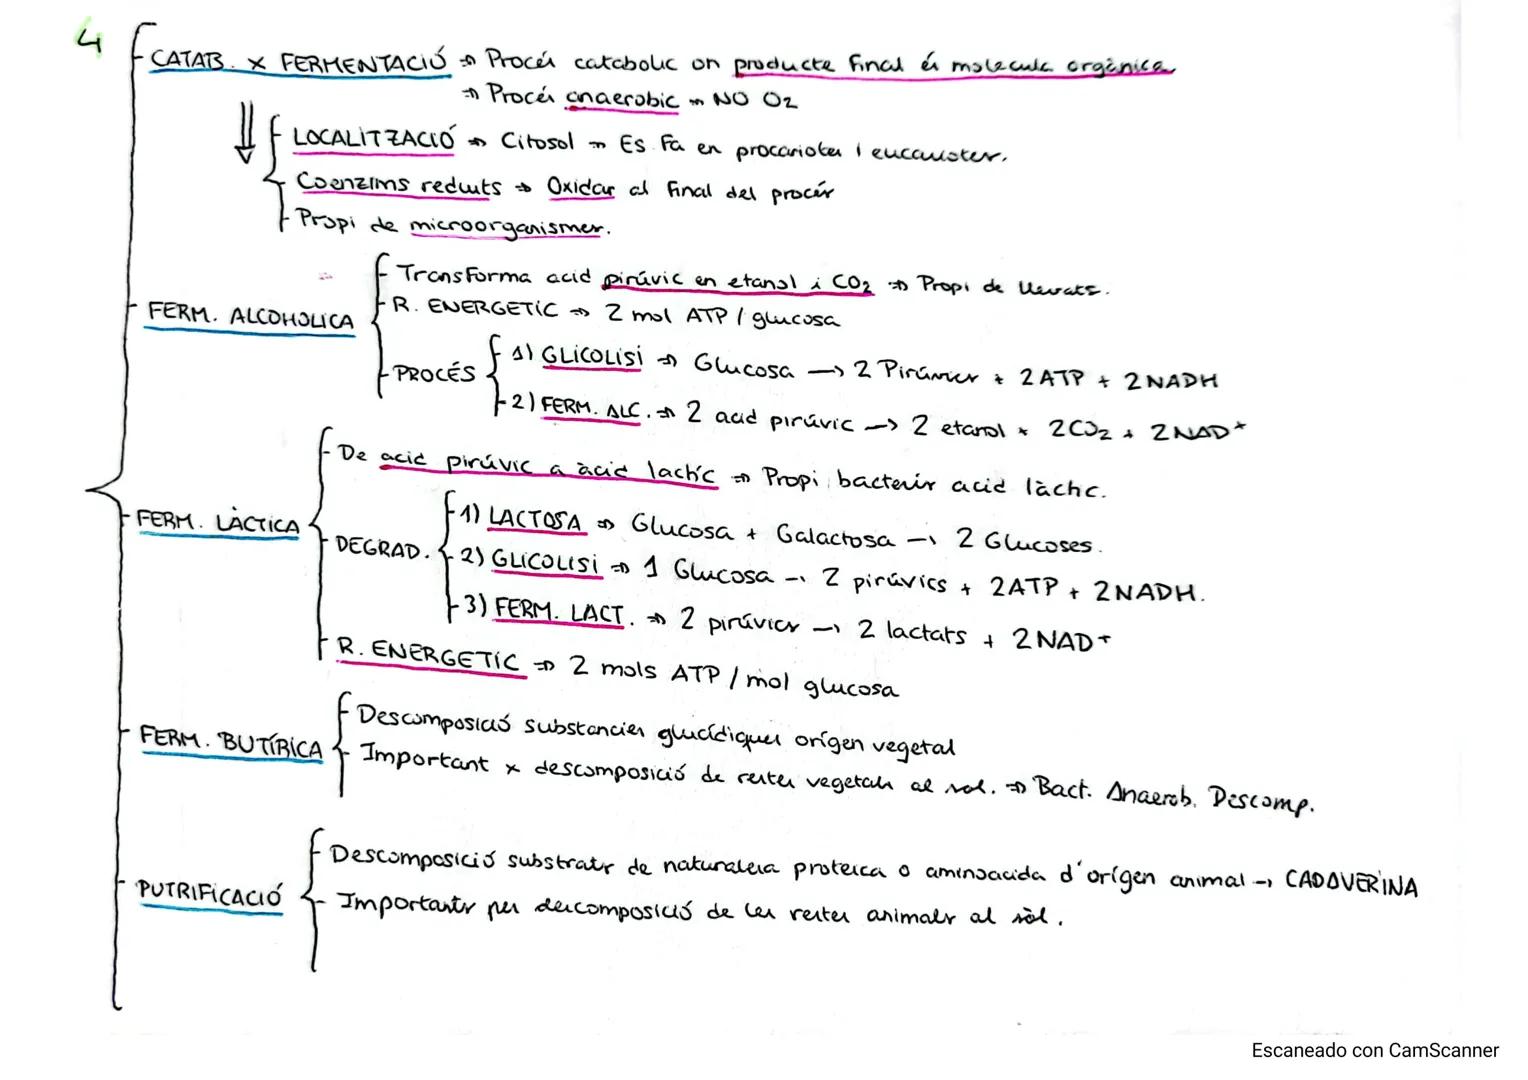 4
CATAB. x FERMENTACIÓ ⇒ Procés catabolic on producte final és molecula orgànica
⇒ Procés anaerobic ⇒ NO O2
LOCALITZACIÓ ⇒ Citosol ⇒ Es Fa en procariotes i eucariotes.
Coenzims reduits ⇒ Oxidar al final del procés
Propi de microorganismes.
FERM. ALCOHOLICA
Transforma acid pirúvic en etanol i CO2 ⇒ Propi de llevats.
R. ENERGETIC ⇒ 2 mol ATP / glucosa
PROCÉS
1) GLICOLISI ⇒ Glucosa → 2 Pirúvics + 2ATP + 2NADH
2) FERM. ALC. ⇒ 2 acid pirúvic → 2 etanol + 2CO2 + 2NAD+
FERM. LÀCTICA
De acid pirúvic a àcid làctic ⇒ Propi bacteris acid làctic.
DEGRAD.
1) LACTOSA ⇒ Glucosa + Galactosa → 2 Glucoses.
2) GLICOLISI ⇒ 1 Glucosa → 2 pirúvics + 2ATP + 2NADH.
3) FERM. LACT. ⇒ 2 pirúvics → 2 lactats + 2NAD+
R. ENERGETIC ⇒ 2 mols ATP / mol glucosa
FERM. BUTÍRICA
Descomposició substancies glucídiques orígen vegetal
Important x descomposició de restes vegetals al sol. ⇒ Bact. Anaerob. Descomp.
PUTRIFICACIÓ
Descomposició substrats de naturalesa proteica o aminoacida d'orígen animal → CADAVERINA
Importants per descomposició de les restes animals al sòl.
Escaneado con CamScanner